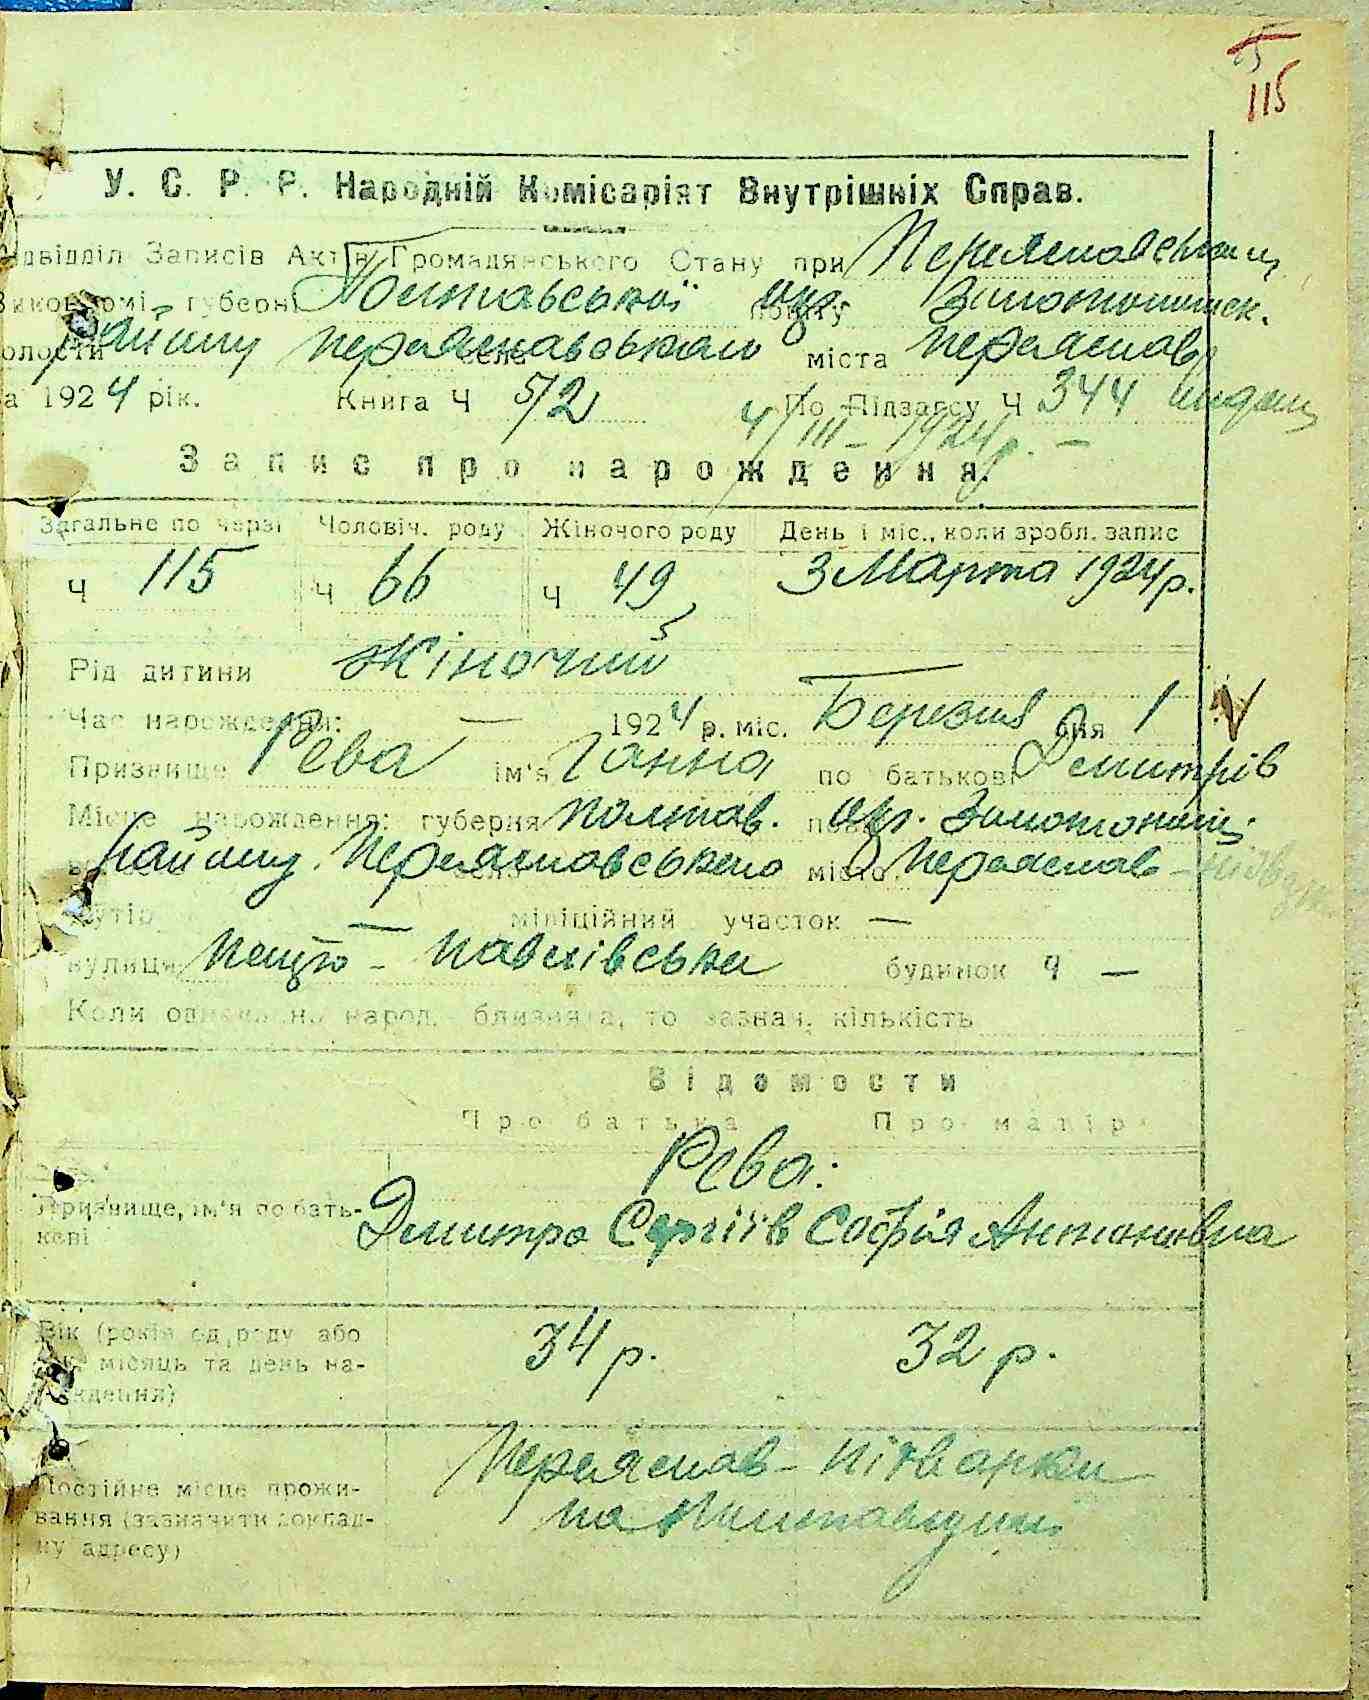 115
У. С. Р. Р. Народній Комісаріят Внутрішніх Справ.
Підвідділ Записів Актів Громадянського Стану при Переяславськім
Виконкомі губерні Полтавської повіту окр. Золотоношськ.
волости району Переяславського села міста Переяслав
за 1924 рік. Книга Ч 5/2 По Підзагсу Ч 344 видан
4/III-1924р. -
Запис про нарождення.
Загальне по черзі Чоловіч. роду Жіночого роду День і міс., коли зробл. запис
Ч 115 Ч 66 Ч 49 3 Марта 1924р.
Рід дитини Жіночий
Час нарождення: — 1924 р. міс. Березня дня 1
Призвище Рева ім'я Ганна по батькові Демитрів
Місце нарождення: губерня Полтав. пов. окр. Золотонош.
району Переяславського село місто Переяслав - Підварки
хутір — міліційний участок —
вулиця Петро-Павлівська будинок Ч —
Коли одночасно народ. близнята, то зазнач. кількість
Відомости
Про батька Про матір
Рева:
Призвище, ім'я по батькові Дмитро Сергіїв Софія Антоновна
Вік (років од роду або рік, місяць та день нарождення) 34 р. 32 р.
Постійне місце проживання (зазначити докладну адресу) Переяслав - Підварки
на Полтавщині